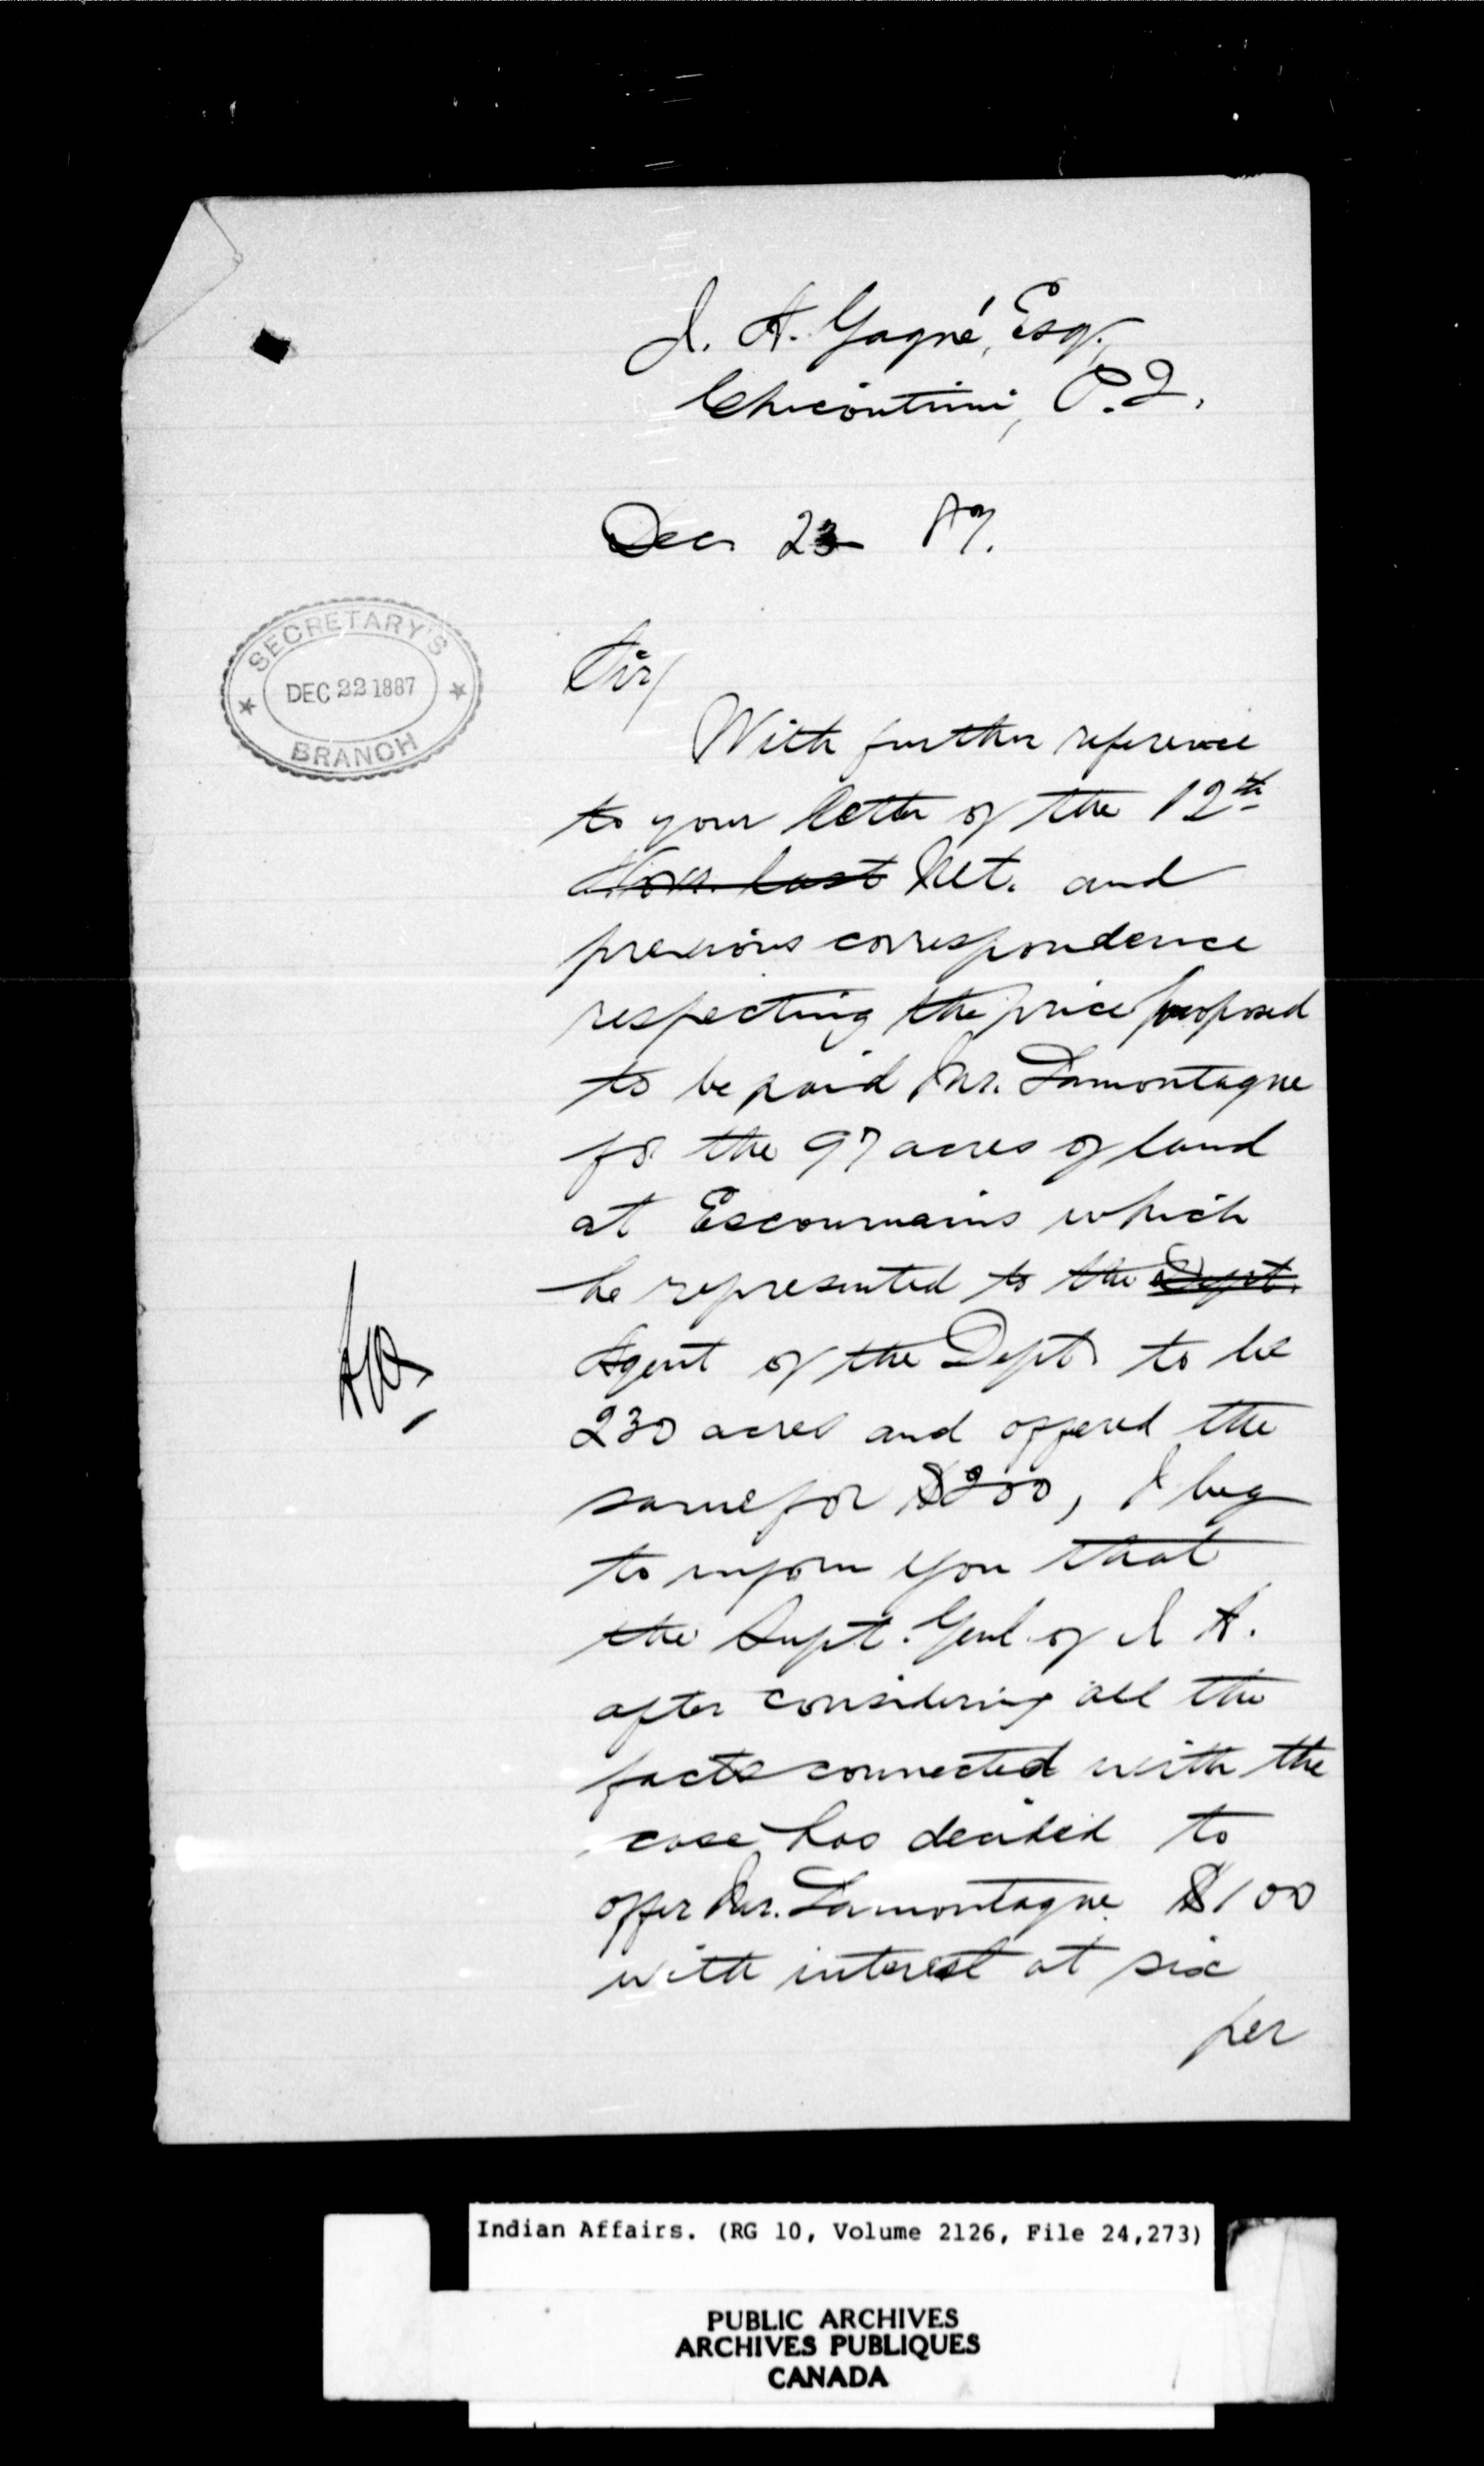 J. A. Gagné, Esq.,
Chicoutimi, P.Q.
Dec 23 87.
SECRETARY'S
DEC 22 1887
BRANCH
Sir,
With further reference
to your letter of the 12th
Nov. last Ult. and
previous correspondence
respecting the price proposed
to be paid Mr. Lamontagne
for the 97 acres of land
at Escoumains which
he represented to the Dept.
Agent of the Dept. to be
230 acres and offered the
same for $200, I beg
to inform you that
the Supt. Genl. of I. A.
after considering all the
facts connected with the
case has decided to
offer Mr. Lamontagne $100
with interest at six
per
Indian Affairs. (RG 10, Volume 2126, File 24,273)
PUBLIC ARCHIVES
ARCHIVES PUBLIQUES
CANADA